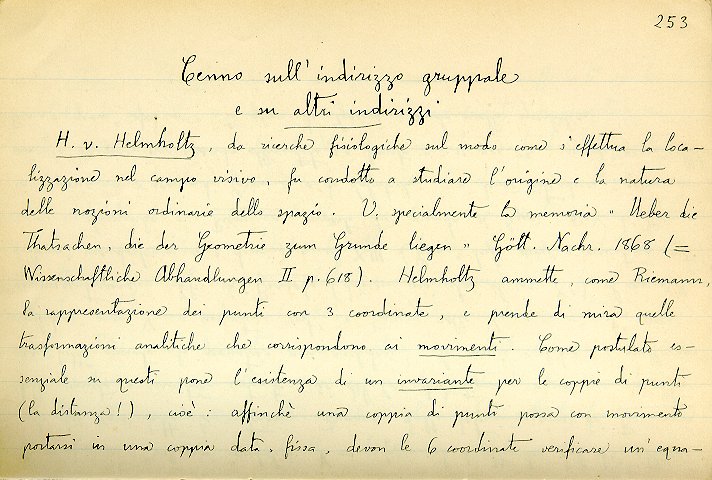 253
Cenno sull'indirizzo gruppale
e su altri indirizzi
H. v. Helmholtz, da ricerche fisiologiche sul modo come s'effettua la loca-
lizzazione nel campo visivo, fu condotto a studiare l'origine e la natura
delle nozioni ordinarie dello spazio. V. specialmente la memoria " Ueber die
Thatsachen, die der Geometrie zum Grunde liegen " Gött. Nachr. 1868 (=
Wissenschaftliche Abhandlungen II p. 618). Helmholtz ammette, come Riemann,
la rappresentazione dei punti con 3 coordinate, e prende di mira quelle
trasformazioni analitiche che corrispondono ai movimenti. Come postulato es-
senziale su questi pone l'esistenza di un invariante per le coppie di punti
(la distanza!), cioè: affinchè una coppia di punti possa con movimento
portarsi in una coppia data, fissa, devon le 6 coordinate verificare un'equa-